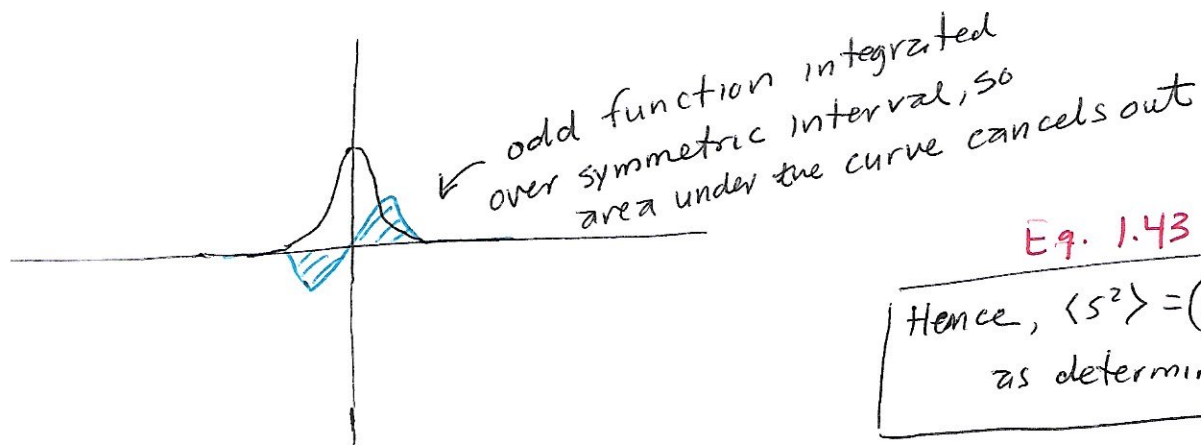 odd function integrated
over symmetric interval, so
area under the curve cancels out
Eq. 1.43
Hence, ⟨s²⟩ = (
as determin